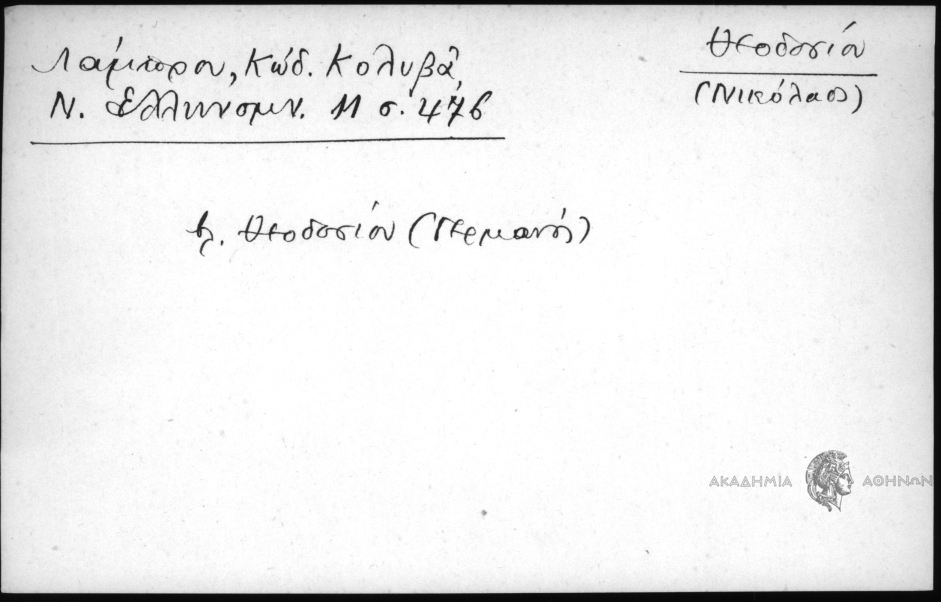 Θεοδοσίου
(Νικόλαος)
Λάμπρου, Κώδ. Κολυβᾶ,
Ν. Ἑλληνομν. 11 σ. 476
βλ. Θεοδοσίου (Γερμανός)
ΑΚΑΔΗΜΙΑ ΑΘΗΝΩΝ